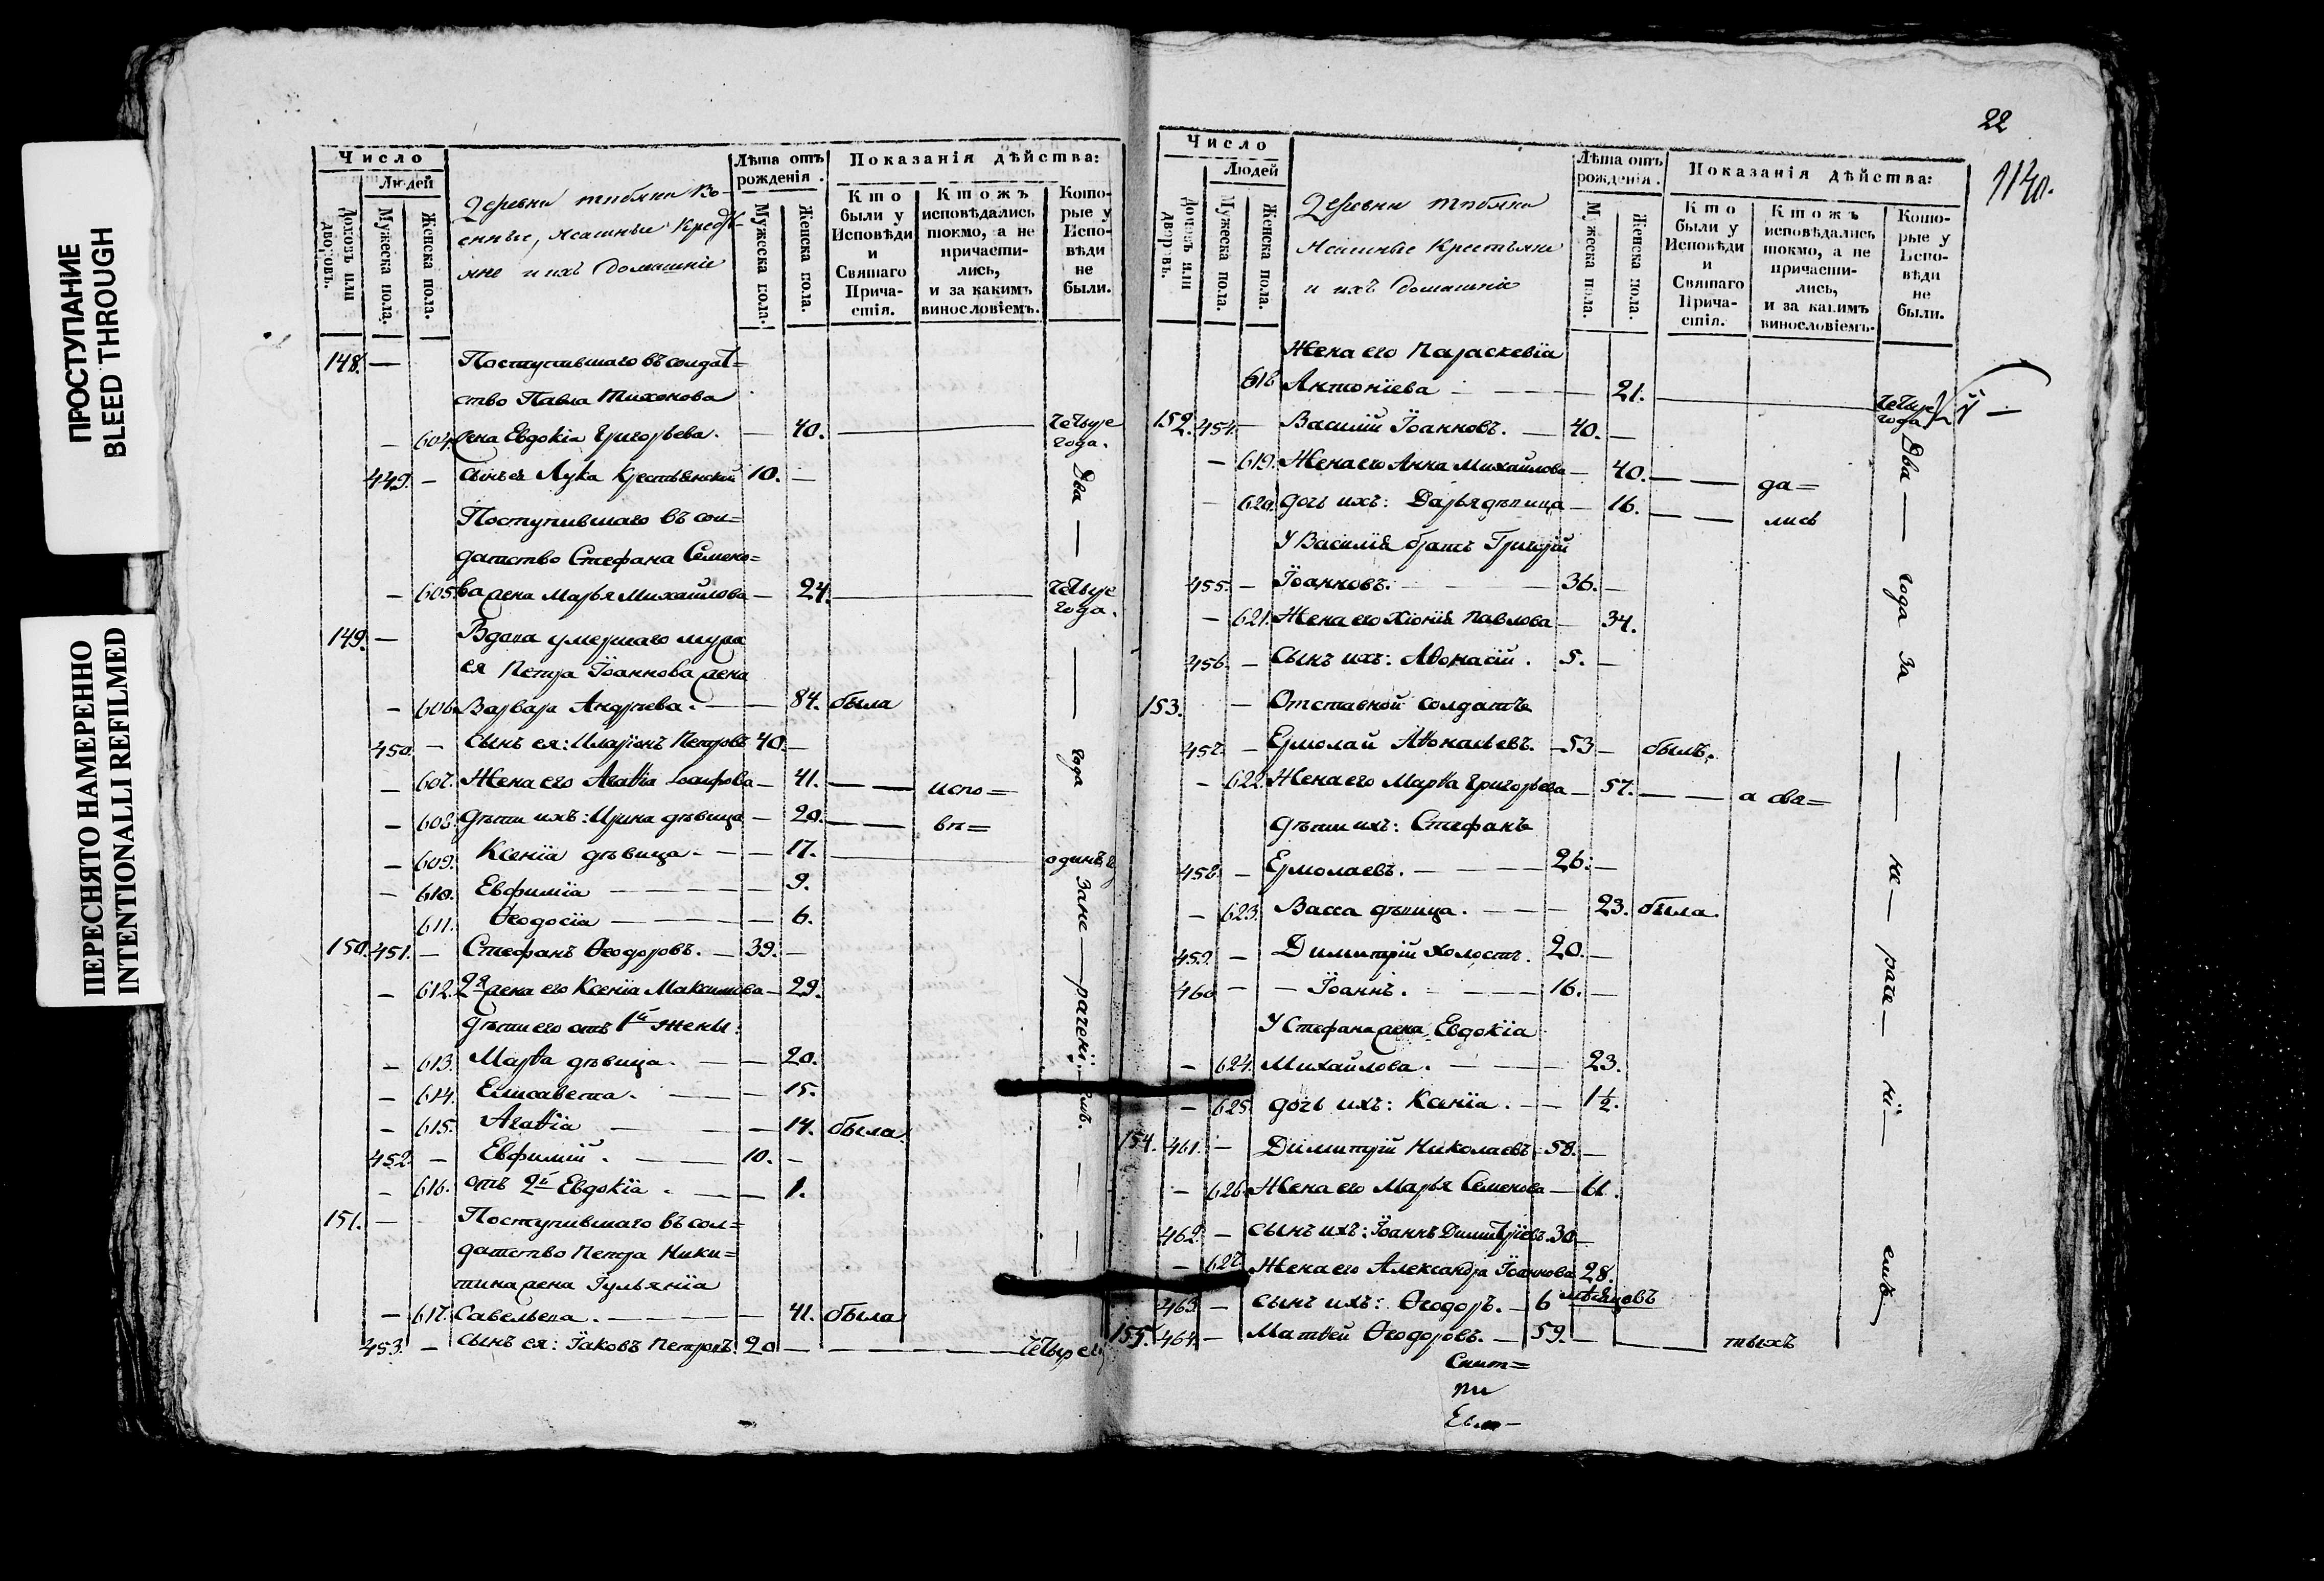 ПРОСТУПАНИЕ
BLEED THROUGH
ПЕРЕСНЯТО НАМЕРЕННО
INTENTIONALLI REFILMED
Число
Людей
домовъ или дворовъ.
Мужеска пола.
Женска пола.
Деревни
ясашные
и ихъ домашніе
Лѣта отъ рожденія.
Мужеска пола.
Женска пола.
Показанія дѣйства:
Кто были у Исповѣди и Святаго Прича-стія.
Ктожъ исповѣдались токмо, а не причасти-лись, и за какимъ винословіемъ.
Кото-рые у Испо-вѣди не были.
148. — Поступившаго въ солдат=
ство Павла Тихонова
— 604. жена Евдокіа Григорьева. — 40. четыре года.
449. — сынъ ея Лука Крестьянскій 10. —
Поступившаго въ сол=
датство Стефана Семено=
— 605. ва жена Марья Михайлова — 24. четыре года.
149. — Вдова умершаго мужа
ея Петра Іоаннова жена
— 606. Варвара Андреева. — 84. была
450. — сынъ ея: Иларіонъ Петровъ 40. —
— 607. Жена его Агаѳіа — 41. — испо=
— 608. дѣти ихъ: Ирина дѣвица — 20. — вѣ=
— 609. Ксеніа дѣвица. — 17. одинъ
— 610. Евфиміа — 9.
611. Ѳеодосіа — 6.
150. 451. — Стефанъ Ѳеодоровъ. — 39. —
— 612. 2я жена его Ксеніа Максимова — 29.
дѣти его отъ 1й жены:
— 613. Марѳа дѣвица. — 20.
— 614. Елисавета. — 15.
— 615. Агаѳіа — 14. была
452. — Евфимій. — 10. —
— 616. отъ 2й Евдокіа. — 1.
151. — Поступившаго въ сол=
датство Петра Ники=
тина жена Іульяніа
— 617. Савельева. — 41. была
453. — сынъ ея: Іаковъ Петровъ. 20 — четыре
Два — года
Зане — раченіемъ.
22
1140.
Число
Людей
домовъ или дворовъ.
Мужеска пола.
Женска пола.
Деревни
Ясашные Крестьяне
и ихъ домашніе
Лѣта отъ рожденія.
Мужеска пола.
Женска пола.
Показанія дѣйства:
Кто были у Исповѣди и Святаго Прича-стія.
Ктожъ исповѣдались токмо, а не причасти-лись, и за какимъ винословіемъ.
Кото-рые у Испо-вѣди не были.
Жена его Параскевіа
618 Антоніева — 21. четыре года
152. 454. — Василій Іоанновъ. — 40. —
— 619. Жена его Анна Михайлова — 40. — да=
— 620. дочь ихъ: Дарья дѣвица — 16. — лись
У Василія братъ Григорій
455. — Іоанновъ. — 36. —
— 621. Жена его Хіонія Павлова — 34.
456. — сынъ ихъ: Аѳонасій. 5. —
153. — Отставной солдатъ
457. — Ермолай Аѳонасьевъ. — 53 — былъ.
— 622. Жена его Марѳа Григорьева — 57. — а свя=
дѣти ихъ: Стефанъ
458. — Ермолаевъ. — 26. —
— 623. Васса дѣвица. — 23. была
459. — Димитрій холостъ. 20. —
460 — Іоаннъ. — 16. —
У Стефана жена Евдокіа
— 624. Михайлова. — 23.
— 625. дочь ихъ: Ксеніа. — 1½.
154. 461. — Димитрій Николаевъ 58. —
— 626. Жена его Марья Семенова — 61.
462. — сынъ ихъ: Іоаннъ Димитріевъ 30 —
— 627. Жена его Александра Іоаннова 28.
463. — сынъ ихъ: Ѳеодоръ. — 6 мѣсяцовъ
155. 464. — Матѳей Ѳеодоровъ. — 59. — тыхъ
Два — года за — не — раче — ні — емъ